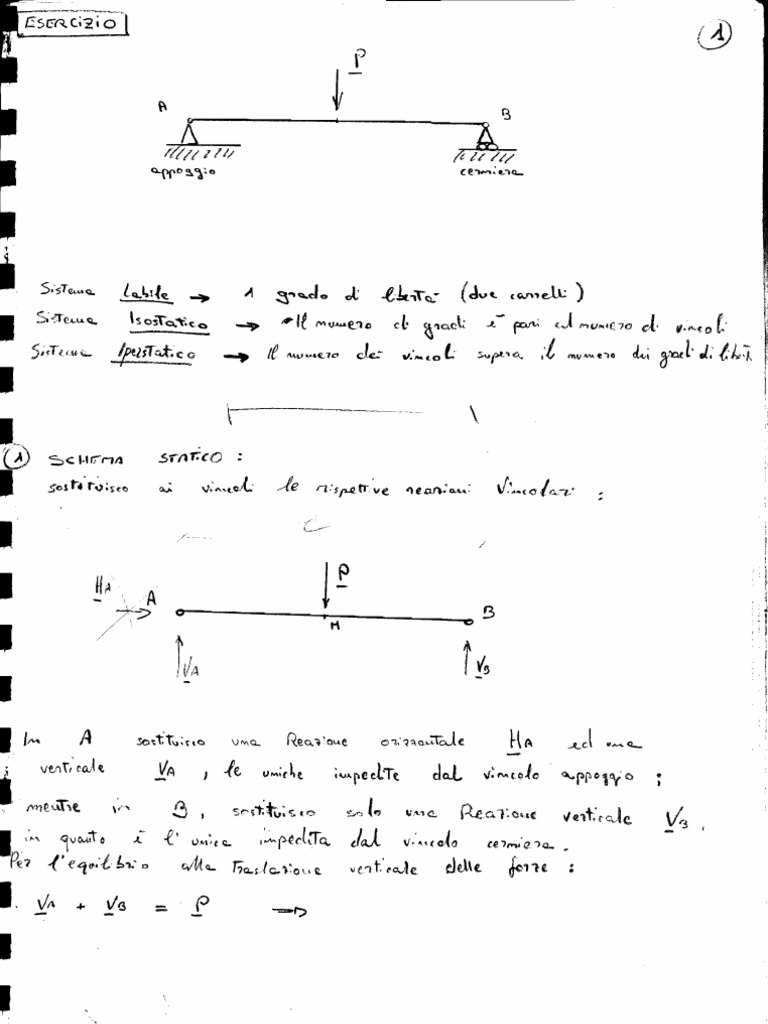 ESERCIZIO
1
P
A
B
appoggio
cerniera
Sistema Labile → 1 grado di libertà (due carrelli)
Sistema Isostatico → Il numero di gradi è pari al numero di vincoli
Sistema Iperstatico → Il numero dei vincoli supera il numero dei gradi di libertà
1 SCHEMA STATICO :
sostituisco ai vincoli le rispettive reazioni Vincolari :
P
HA
A
B
M
VA
VB
In A sostituisco una Reazione orizzontale HA ed una
verticale VA , le uniche impedite dal vincolo appoggio ;
mentre in B , sostituisco solo una Reazione verticale VB ,
in quanto è l'unica impedita dal vincolo cerniera .
Per l'equilibrio alla Traslazione verticale delle forze :
VA + VB = P →